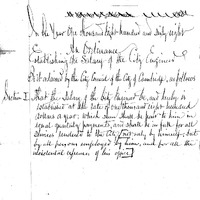 In the Year One thousand eight hundred and sixty eight
An Ordinance
Establishing the Salary of the City Engineer
Be it ordained by the City Council of the City of Cambridge, as follows
Section I. That the Salary of the City Engineer be, and hereby is
established at the rate of one thousand eight hundred
dollars a year, which sum shall be paid to him in
equal quarterly payments, and shall be in full for all
services rendered to the City, not only by himself, but
by all persons employed by him, and for all the
incidental expenses of his office.